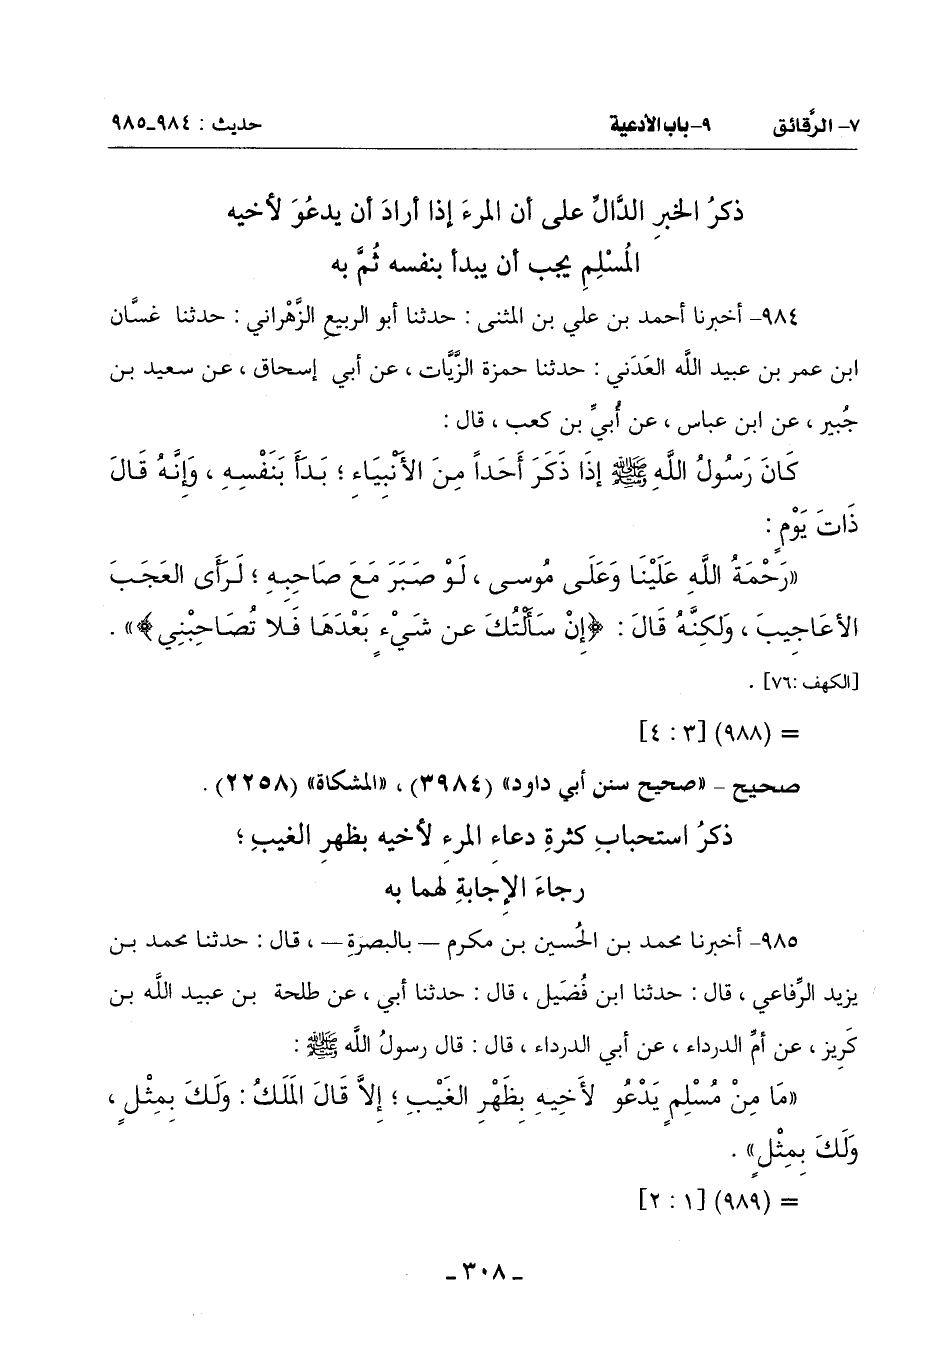 ٧- الرَّقائق ٩-باب الأدعية حديث : ٩٨٤-٩٨٥
ذكرُ الخبرِ الدَّالِّ على أن المرءَ إذا أرادَ أن يدعُوَ لأخيه
المُسْلِمِ يجب أن يبدأ بنفسه ثُمَّ به
٩٨٤- أخبرنا أحمد بن علي بن المثنى : حدثنا أبو الربيع الزَّهْراني : حدثنا غسَّان
ابن عمر بن عبيد اللَّه العَدَني : حدثنا حمزة الزَّيَّات ، عن أبي إسحاق ، عن سعيد بن
جُبير ، عن ابن عباس ، عن أُبيِّ بن كعب ، قال :
كَانَ رَسُولُ اللَّهِ ﷺ إذَا ذَكَرَ أَحَداً مِنَ الأَنْبِيَاءِ ؛ بَدَأَ بَنَفْسِهِ ، وَإنَّهُ قَالَ
ذَاتَ يَوْمٍ :
«رَحْمَةُ اللَّهِ عَلَيْنَا وَعَلَى مُوسى ، لَوْ صَبَرَ مَعَ صَاحِبِهِ ؛ لَرَأَى العَجَبَ
الأعَاجِيبَ ، وَلكِنَّهُ قَالَ : ﴿إنْ سَأَلْتُكَ عن شَيْءٍ بَعْدَهَا فَلا تُصَاحِبْنِي﴾» .
[الكهف :٧٦] .
= (٩٨٨) [٣ : ٤]
صحيح - «صحيح سنن أبي داود» (٣٩٨٤) ، «المشكاة» (٢٢٥٨) .
ذكرُ استحبابِ كثرةِ دعاءِ المرءِ لأخيه بظهرِ الغيبِ ؛
رجاءَ الإجابةِ لهما به
٩٨٥- أخبرنا محمد بن الحُسين بن مكرم – بالبصرةِ – ، قال : حدثنا محمد بن
يزيد الرِّفاعي ، قال : حدثنا ابن فُضَيل ، قال : حدثنا أبي ، عن طلحة بن عبيد اللَّه بن
كَرِيز ، عن أمِّ الدرداء ، عن أبي الدرداء ، قال : قال رسولُ اللَّه ﷺ :
«مَا مِنْ مُسْلِمٍ يَدْعُو لأخِيهِ بِظَهْرِ الغَيْبِ ؛ إلاَّ قَالَ المَلَكُ : وَلَكَ بِمِثْلٍ ،
وَلَكَ بِمِثْلٍ» .
= (٩٨٩) [١ : ٢]
- ٣٠٨ -